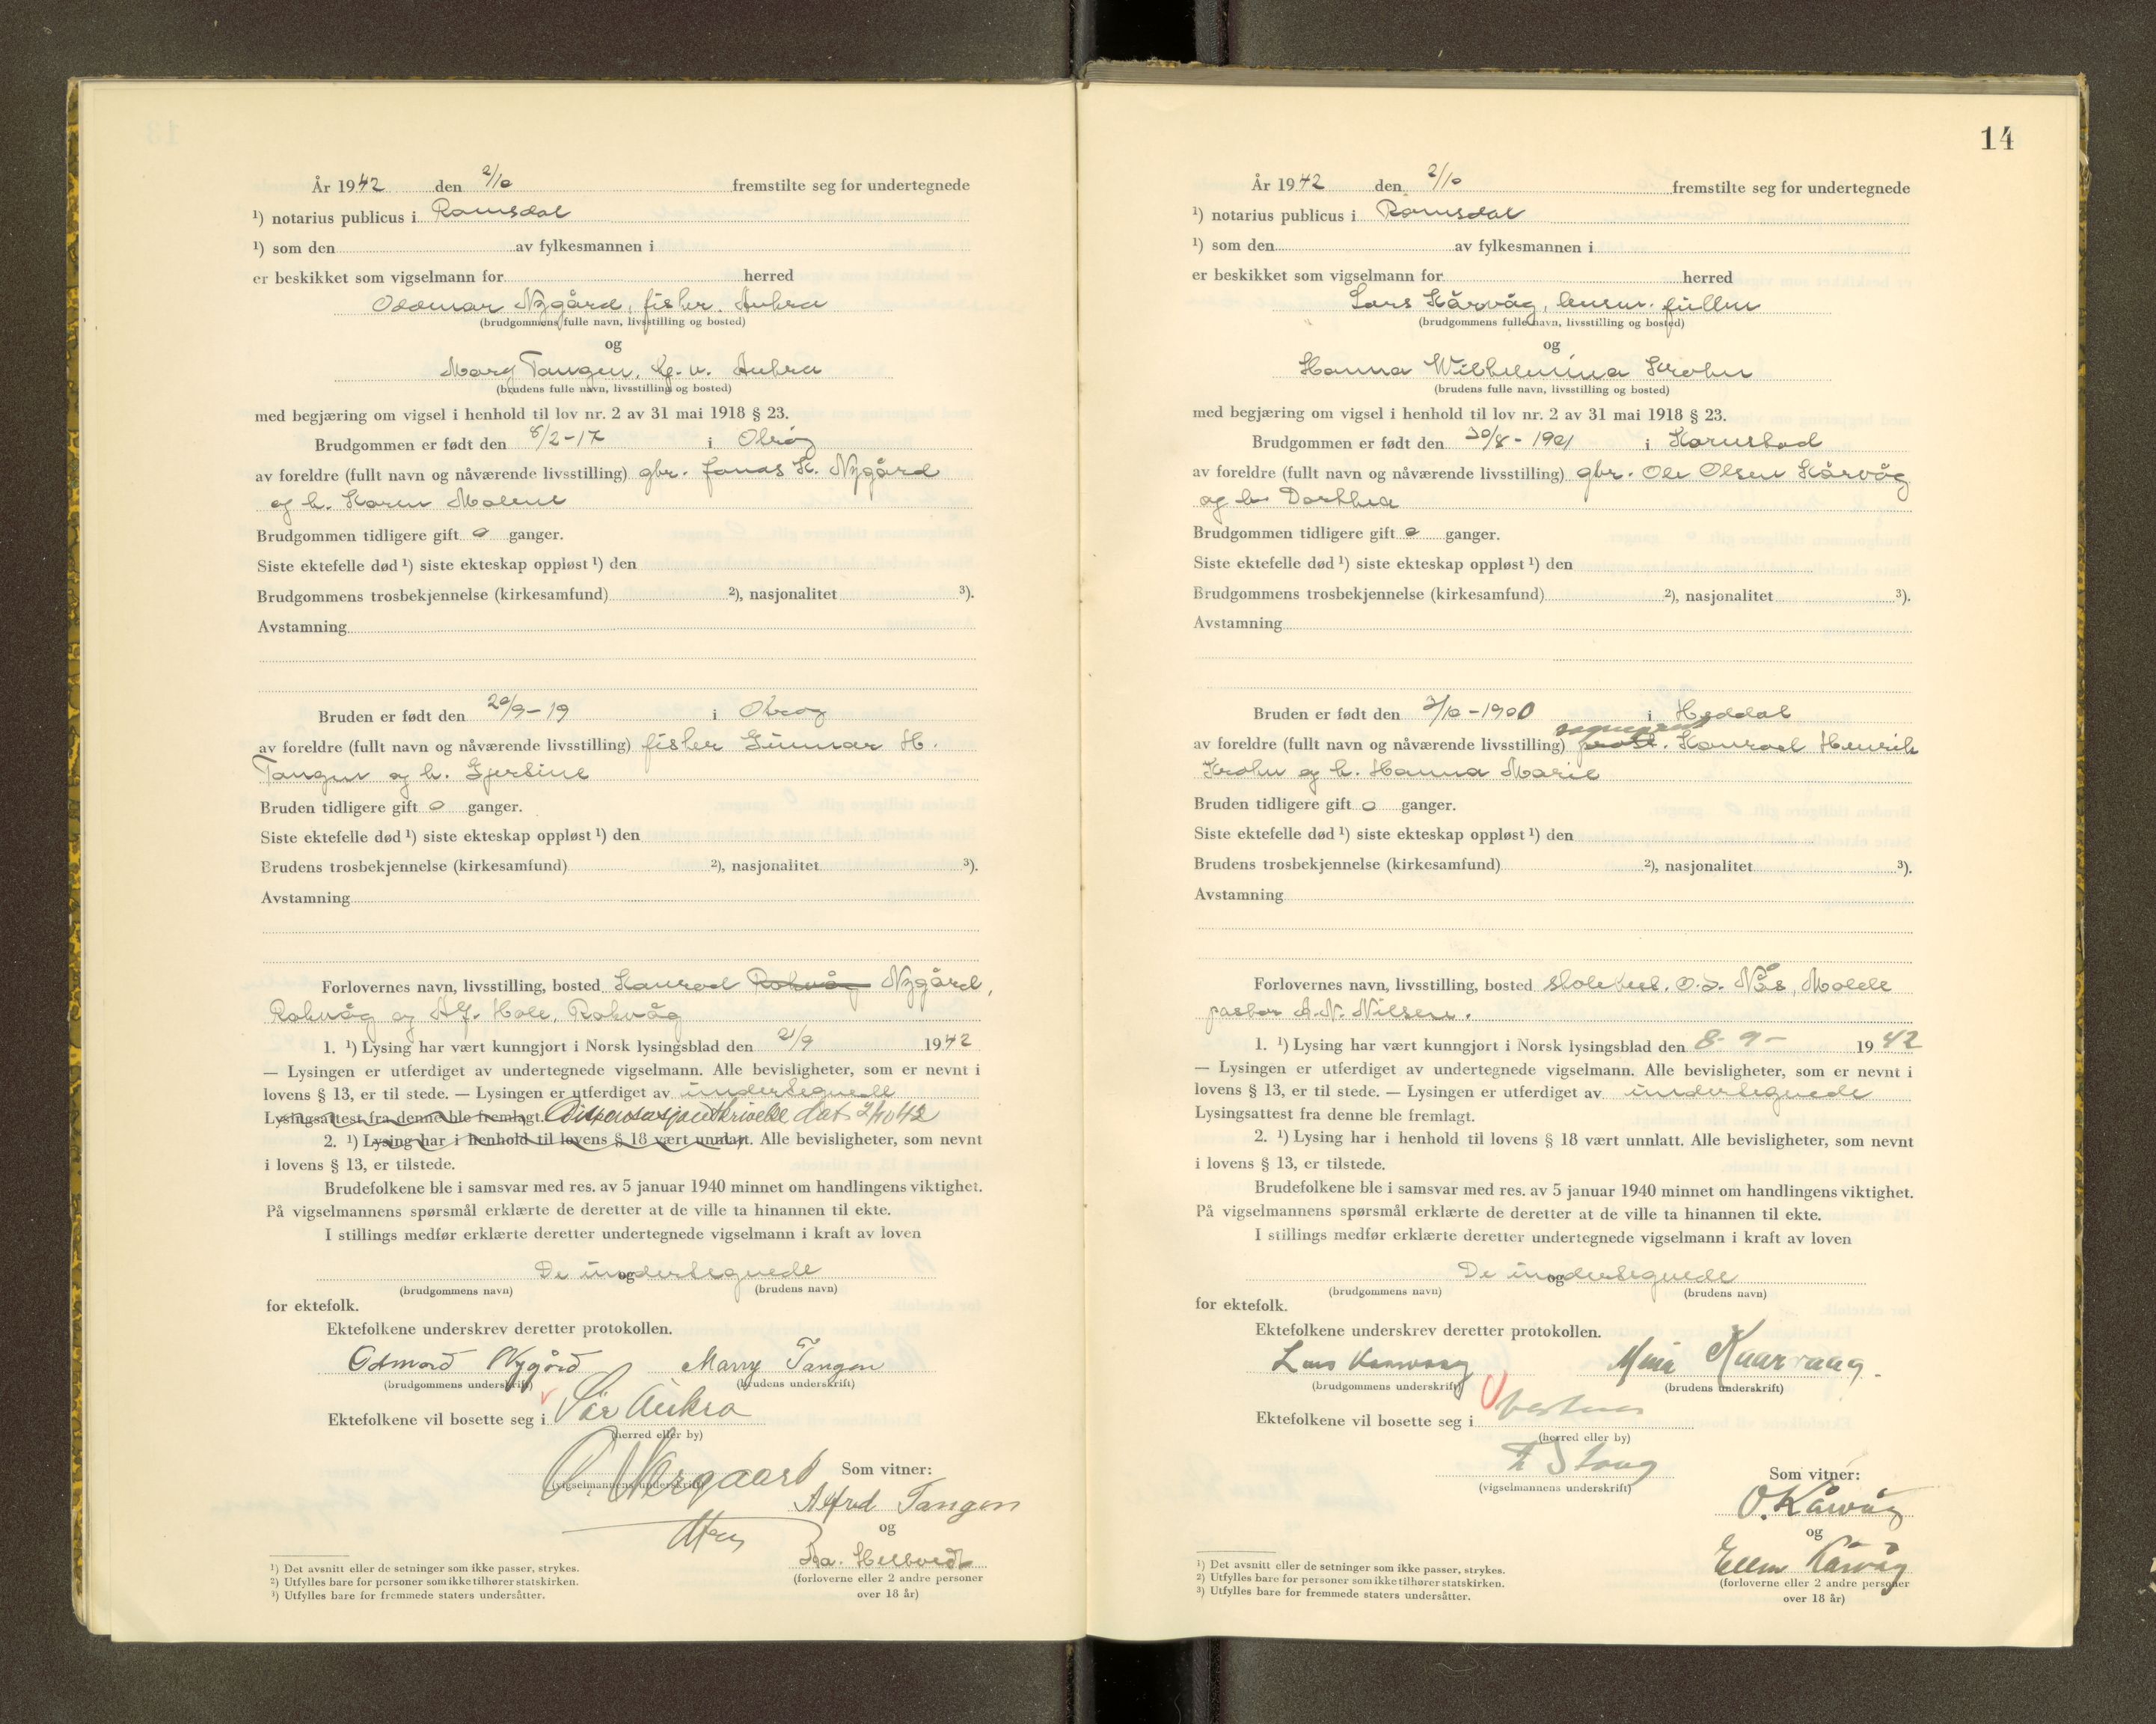 År 1942 den 2/10 fremstilte seg for undertegnede
¹) notarius publicus i Romsdal
¹) som den av fylkesmannen i
er beskikket som vigselmann for herred
Oddmar Nygård, fisker. Aukra
(brudgommens fulle navn, livsstilling og bosted)
og
Mary Tangen, Aukra
(brudens fulle navn, livsstilling og bosted)
med begjæring om vigsel i henhold til lov nr. 2 av 31 mai 1918 § 23.
Brudgommen er født den 8/2-17 i Otrøy
av foreldre (fullt navn og nåværende livsstilling) gbr. Jonas K. Nygård
og h. Karen Malene
Brudgommen tidligere gift 0 ganger.
Siste ektefelle død ¹) siste ekteskap oppløst ¹) den
Brudgommens trosbekjennelse (kirkesamfund) ²), nasjonalitet ³).
Avstamning
Bruden er født den 20/9-19 i Otrøy
av foreldre (fullt navn og nåværende livsstilling) fisker Gunnar H.
Tangen og h. Gjertine
Bruden tidligere gift 0 ganger.
Siste ektefelle død ¹) siste ekteskap oppløst ¹) den
Brudens trosbekjennelse (kirkesamfund) ²), nasjonalitet ³).
Avstamning
Forlovernes navn, livsstilling, bosted Konrad Rakvåg Nygård,
Rakvåg og Alf. Hole, Rakvåg
1. ¹) Lysing har vært kunngjort i Norsk lysingsblad den 21/9 1942
— Lysingen er utferdiget av undertegnede vigselmann. Alle bevisligheter, som er nevnt i
lovens § 13, er til stede. — Lysingen er utferdiget av undertegnede
Lysingsattest fra denne ble fremlagt. dat 2/10 42
2. ¹) Lysing har i henhold til lovens § 18 vært unnlatt. Alle bevisligheter, som nevnt
i lovens § 13, er tilstede.
Brudefolkene ble i samsvar med res. av 5 januar 1940 minnet om handlingens viktighet.
På vigselmannens spørsmål erklærte de deretter at de ville ta hinannen til ekte.
I stillings medfør erklærte deretter undertegnede vigselmann i kraft av loven
De undertegnede
og
(brudgommens navn) (brudens navn)
for ektefolk.
Ektefolkene underskrev deretter protokollen.
Odmard Nygård Marry Tangen
(brudgommens underskrift) (brudens underskrift)
Ektefolkene vil bosette seg i Sør Aukra
(herred eller by)
Som vitner:
(vigselmannens underskrift)
Alfred Tangen
og
(forloverne eller 2 andre personer
over 18 år)
¹) Det avsnitt eller de setninger som ikke passer, strykes.
²) Utfylles bare for personer som ikke tilhører statskirken.
³) Utfylles bare for fremmede staters undersåtter.
14
År 1942 den 2/10 fremstilte seg for undertegnede
¹) notarius publicus i Romsdal
¹) som den av fylkesmannen i
er beskikket som vigselmann for herred
Lars Kårvåg, lensm. fullm
(brudgommens fulle navn, livsstilling og bosted)
og
Hanna Wilhelmina Krohn
(brudens fulle navn, livsstilling og bosted)
med begjæring om vigsel i henhold til lov nr. 2 av 31 mai 1918 § 23.
Brudgommen er født den 30/8-1901 i Kornstad
av foreldre (fullt navn og nåværende livsstilling) gbr. Ole Olsen Kårvåg
og h. Dorthea
Brudgommen tidligere gift 0 ganger.
Siste ektefelle død ¹) siste ekteskap oppløst ¹) den
Brudgommens trosbekjennelse (kirkesamfund) ²), nasjonalitet ³).
Avstamning
Bruden er født den 3/10-1900 i Heddal
sogneprest
av foreldre (fullt navn og nåværende livsstilling) prost. Konrad Henrik
Krohn og h. Hanna Marie
Bruden tidligere gift 0 ganger.
Siste ektefelle død ¹) siste ekteskap oppløst ¹) den
Brudens trosbekjennelse (kirkesamfund) ²), nasjonalitet ³).
Avstamning
Forlovernes navn, livsstilling, bosted skolebest. O.J. Nås, Molde
pastor A.N. Nilsen.
1. ¹) Lysing har vært kunngjort i Norsk lysingsblad den 8-9- 1942
— Lysingen er utferdiget av undertegnede vigselmann. Alle bevisligheter, som er nevnt i
lovens § 13, er til stede. — Lysingen er utferdiget av undertegnede
Lysingsattest fra denne ble fremlagt.
2. ¹) Lysing har i henhold til lovens § 18 vært unnlatt. Alle bevisligheter, som nevnt
i lovens § 13, er tilstede.
Brudefolkene ble i samsvar med res. av 5 januar 1940 minnet om handlingens viktighet.
På vigselmannens spørsmål erklærte de deretter at de ville ta hinannen til ekte.
I stillings medfør erklærte deretter undertegnede vigselmann i kraft av loven
De undertegnede
og
(brudgommens navn) (brudens navn)
for ektefolk.
Ektefolkene underskrev deretter protokollen.
Lars Kaarvaag Mina Kaarvaag.
(brudgommens underskrift) (brudens underskrift)
Ektefolkene vil bosette seg i Vestnes
(herred eller by)
Som vitner:
(vigselmannens underskrift)
O. Kårvåg
og
Ellen Kårvåg
(forloverne eller 2 andre personer
over 18 år)
¹) Det avsnitt eller de setninger som ikke passer, strykes.
²) Utfylles bare for personer som ikke tilhører statskirken.
³) Utfylles bare for fremmede staters undersåtter.